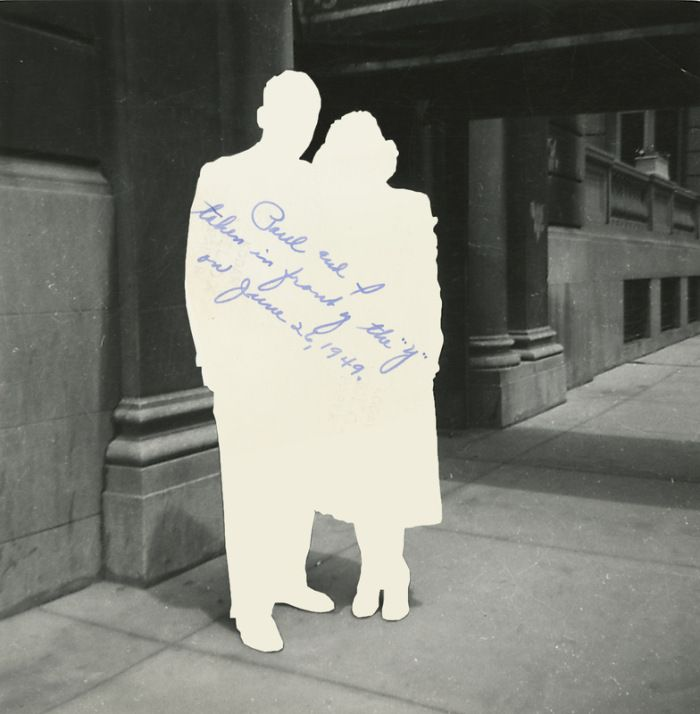 Paul and I
taken in front of the "Y"
on June 26, 1949.